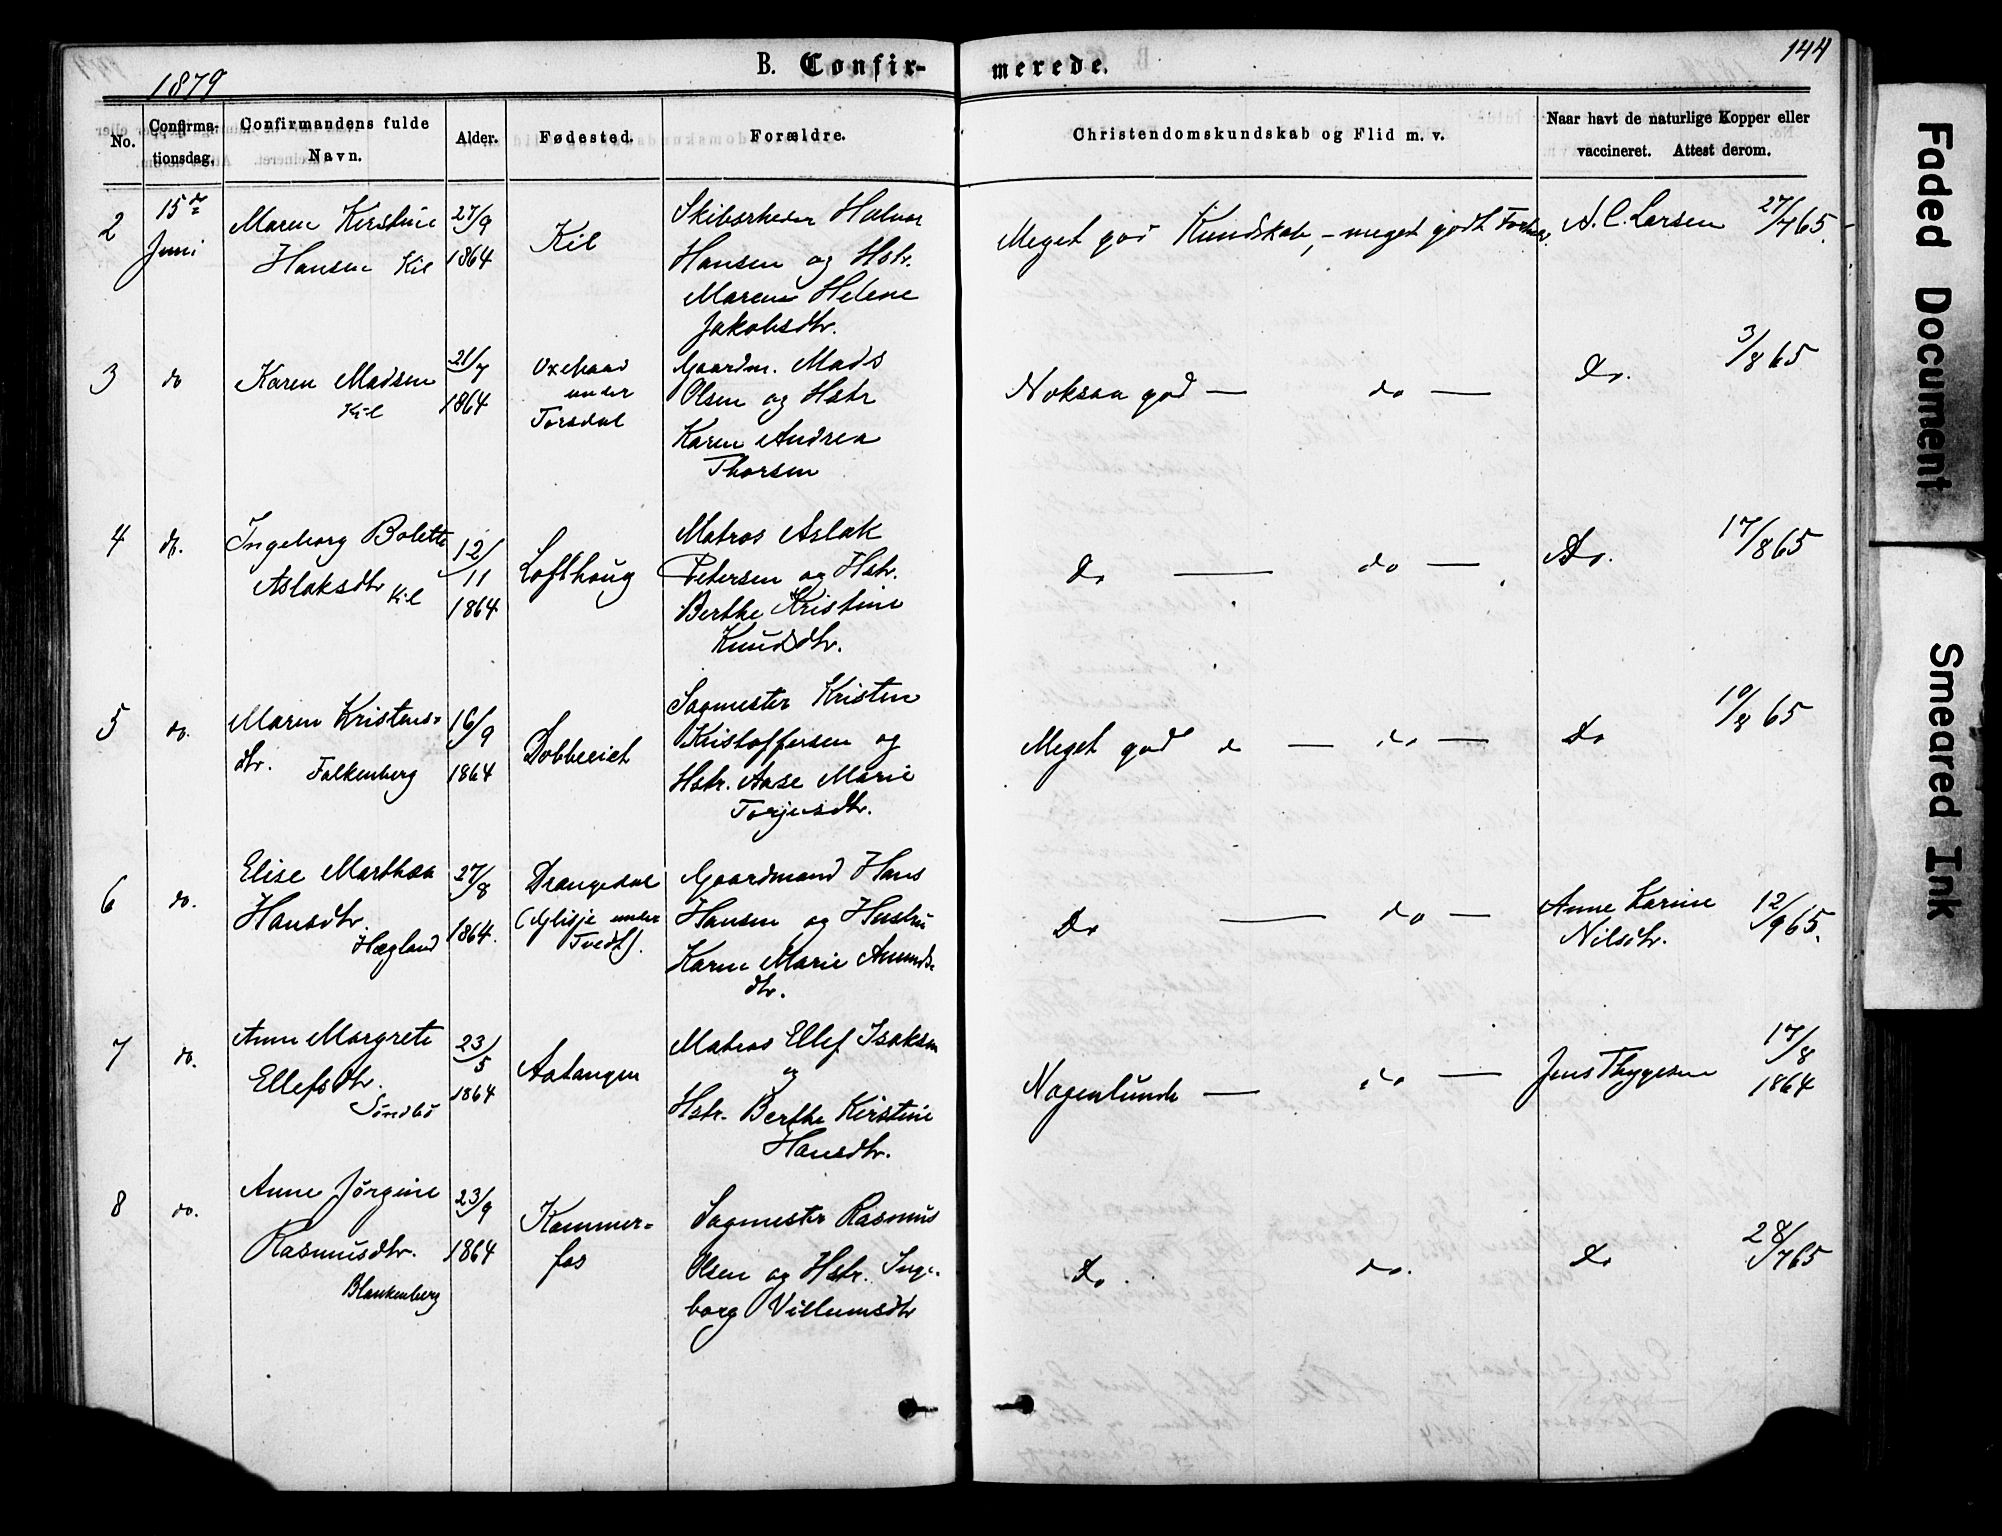 1879
B. Confir-
merede.
144
No.
Confirma-
tionsdag.
Confirmandens fulde
Navn.
Alder.
Fødested.
Forældre.
Christendomskundskab og Flid m. v.
Naar havt de naturlige Kopper eller
vaccineret. Attest derom.
2
15de
Juni
Maren Kirstine
Hansen Kil
27/9
1864
Kil
Skibsrheder Halvor
Hansen og Hstr.
Maren Helene
Jakobsdtr.
Meget god Kundskab, – meget godt Forh.
N. C. Larsen 27/7 65.
3
do
Karen Madsen
Kil
21/7
1864
under
Torsdal
Gaardm. Mads
Olsen og Hstr
Karen Andrea
Thorsen
Noksaa god — do —
Do. 3/8 65
4
do.
Ingeborg Bolette
Aslaksdtr Kil
12/
11
1864
Lofthoug
Matros Aslak
Petersen og Hstr.
Berthe Kristine
Knudsdtr.
Do — do —
Do. 17/8 65
5
do.
Maren Kristens-
dtr. Falkenberg
16/9
1864
Dobbeeiet
Sagmester Kristen
Kristoffersen og
Hstr. Aase Marie
Torjusdtr.
Meget god — do —
Do 10/8 65
6
do.
Elise Marthea
Hansdtr.
Hægland
27/8
1864.
Drangedal
(Glisje under
Tvedt).
Gaardmand Hans
Hansen og Hustru
Karen Marie Amunds-
dtr.
Do — do —
Anne Karine
Nilsdtr.
12/9 65.
7
do.
Anne Margrete
Ellefsdtr.
Søndbø
23/5
1864
Aatangen
Matros Ellef Isaksen
og
Hstr. Berthe Kirstine
Hansdtr.
Nogenlunde — do —
Jens Thygesen
17/8
1864
8
do.
Anne Jørgine
Rasmusdtr.
Blankenberg
23/9
1864
Kammer-
fos
Sagmester Rasmus
Olsen og Hstr. Inge-
borg Villumsdtr
Do. do.
Do 28/7 65
Faded Document
Smeared Ink